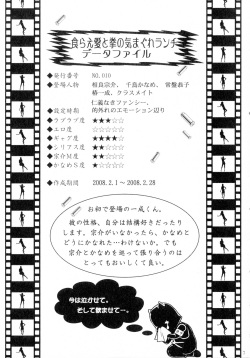 食らえ愛と拳の気まぐれランチ
データファイル
◆発行番号 NO.010
◆登場人物 相良宗介、千鳥かなめ、常盤恭子
椿一成、クラスメイト
◆設定時期 仁義なきファンシー、
的外れのエモーション辺り
◆ラブラブ度 ★★★☆☆
◆エロ度 ☆☆☆☆☆
◆ギャグ度 ★★★★☆
◆シリアス度 ★☆☆☆☆
◆宗介M度 ★★☆☆☆
◆かなめS度 ★☆☆☆☆
◆作成期間 2008.2.1~2008.2.28
お初で登場の一成くん。
彼の性格、自分は結構好きだったり
します。宗介がいなかったら、かなめと
どうにかなれた…わけないか。でも
宗介とかなめを巡って張り合うのは
とってもおいしくて良い。
今は泣かせて。
そして歌ませて…。